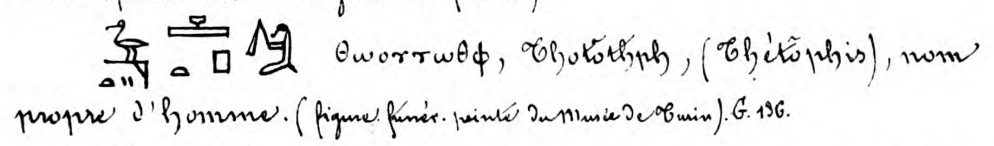 𓅝𓏏𓏭𓊵𓏏𓊪 ⲑⲱⲟⲩⲧⲱⲑⲫ, Thotōthph, (Thétōphis), nom
propre d'homme. (figure funér. peinte du Musée de Turin). G. 136.